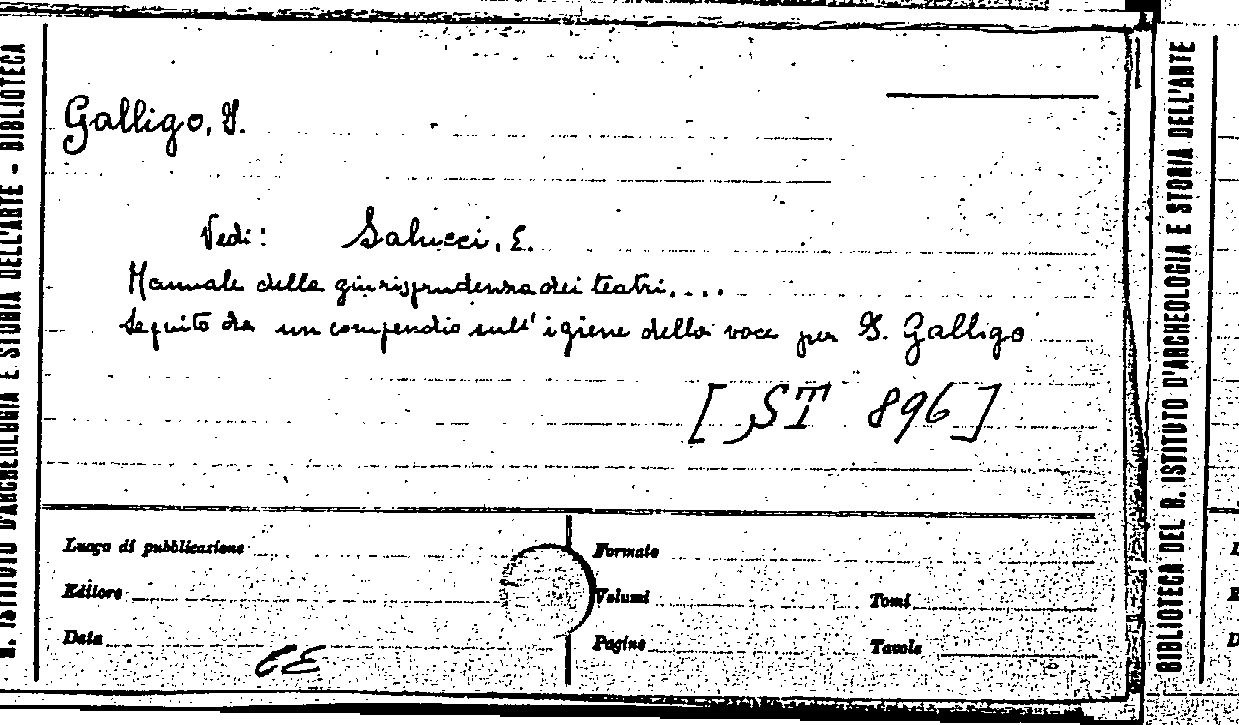 R. ISTITUTO D'ARCHEOLOGIA E STORIA DELL'ARTE - BIBLIOTECA
Galligo, I.
Vedi: Salucci, E.
Manuale della giurisprudenza dei teatri....
Seguito da un compendio sull'igiene della voce per I. Galligo
[ST 896]
Luogo di pubblicazione
Formato
Editore
Volumi
Tomi
Data
Pagine
Tavole
CE
BIBLIOTECA DEL R. ISTITUTO D'ARCHEOLOGIA E STORIA DELL'ARTE